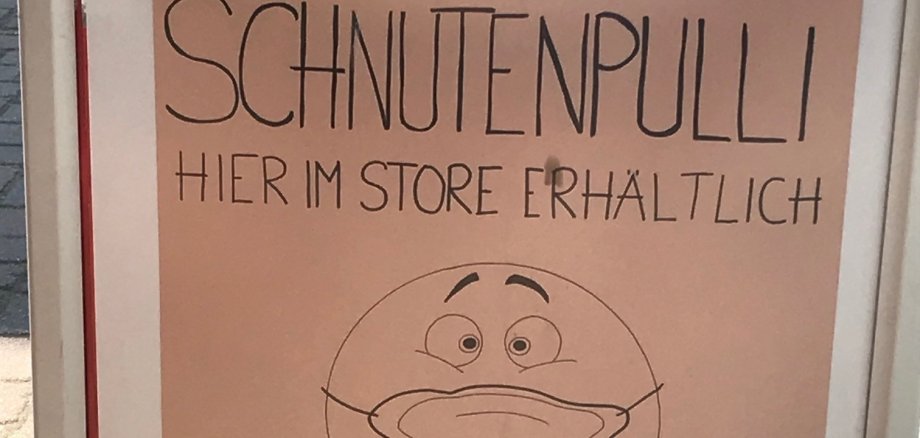 SCHNUTENPULLI
HIER IM STORE ERHÄLTLICH